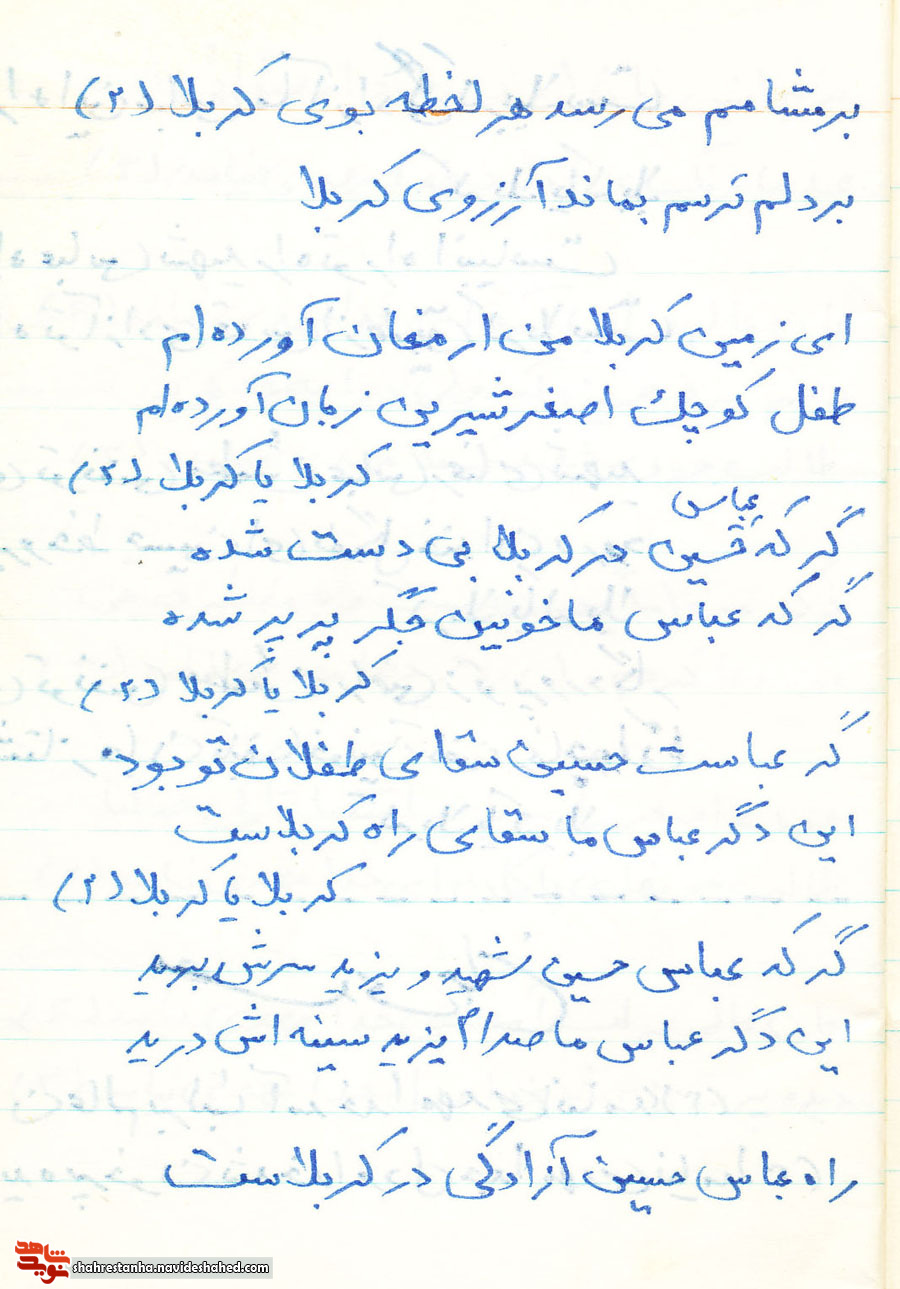 بر مشامم می رسد هر لحظه بوی کربلا (۲)
بر دلم ترسم بماند آرزوی کربلا
ای زمین کربلا من ارمغان آورده ام
طفل کوچک اصغر شیرین زبان آورده ام
کربلا یا کربلا (۲)
عباس
گر که حسین در کربلا بی دست شده
گر که عباس ما خونین جگر پر پر شده
کربلا یا کربلا (۲)
گر عباست حسین سقای طفلان تو بود
این دگر عباس ما سقای راه کربلاست
کربلا یا کربلا (۲)
گر که عباس حسین شهید و یزید سرش برید
این دگر عباس ما صدام یزید سینه اش درید
راه عباس حسین آزادگی در کربلاست
شاهد
نوید
shahrestanha.navideshahed.com